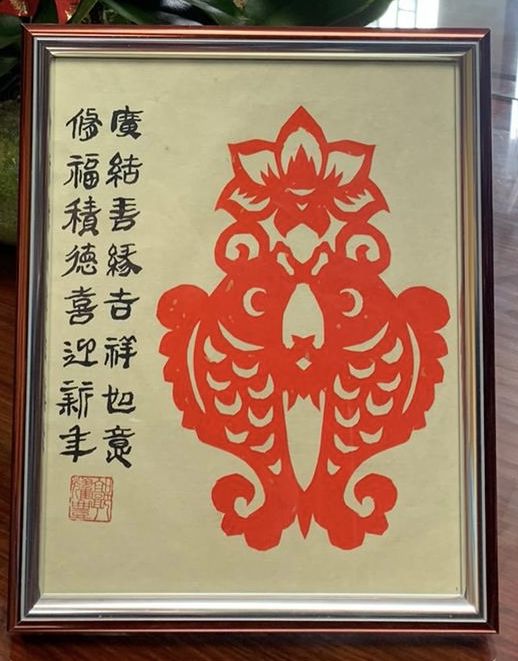 廣結善緣吉祥如意
修福積德喜迎新年